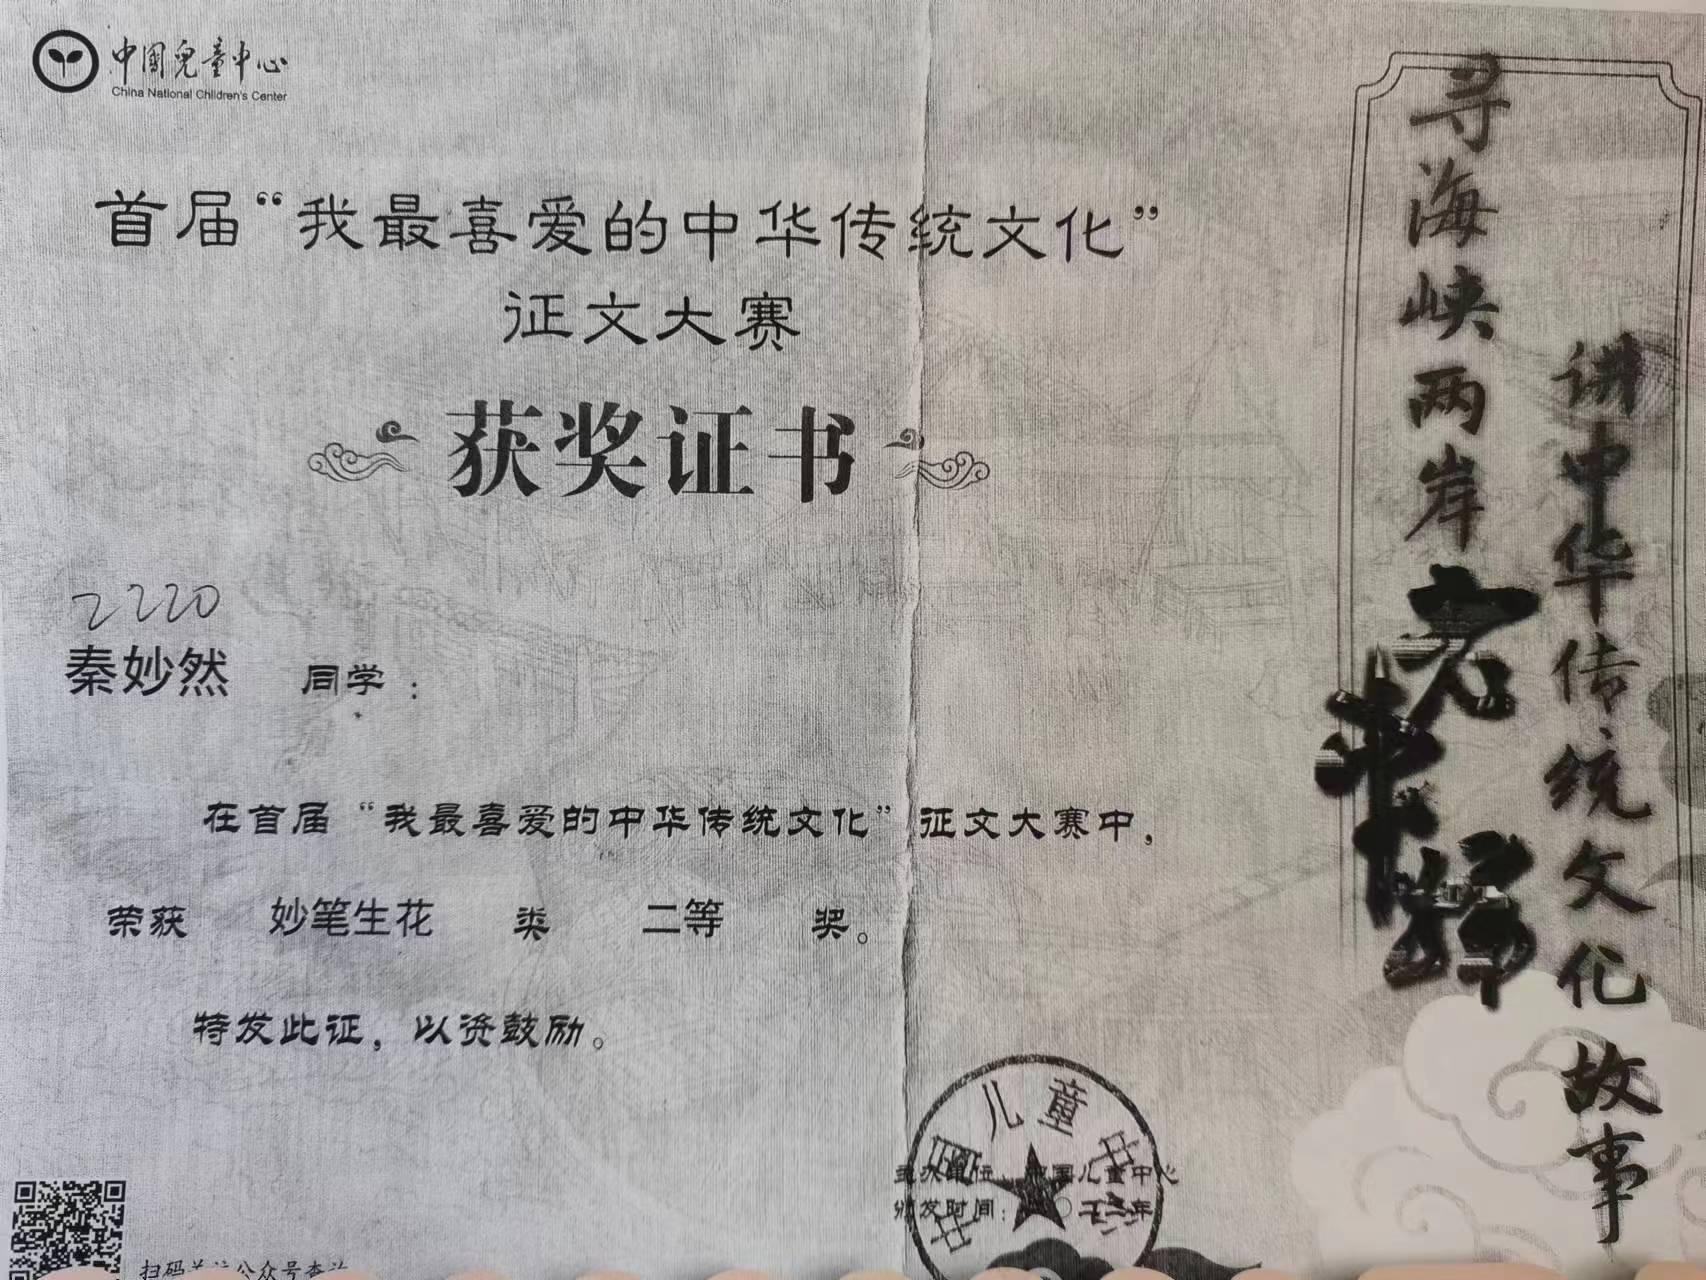 中国儿童中心
China National Children's Center
首届“我最喜爱的中华传统文化”
征文大赛
获奖证书
2220
秦妙然 同学：
在首届“我最喜爱的中华传统文化”征文大赛中，
荣获 妙笔生花 类 二等 奖。
特发此证，以资鼓励。
中国儿童中心
主办单位：中国儿童中心
颁发时间：二〇二二年
扫码关注公众号查询
寻海峡两岸
讲中华传统文化故事